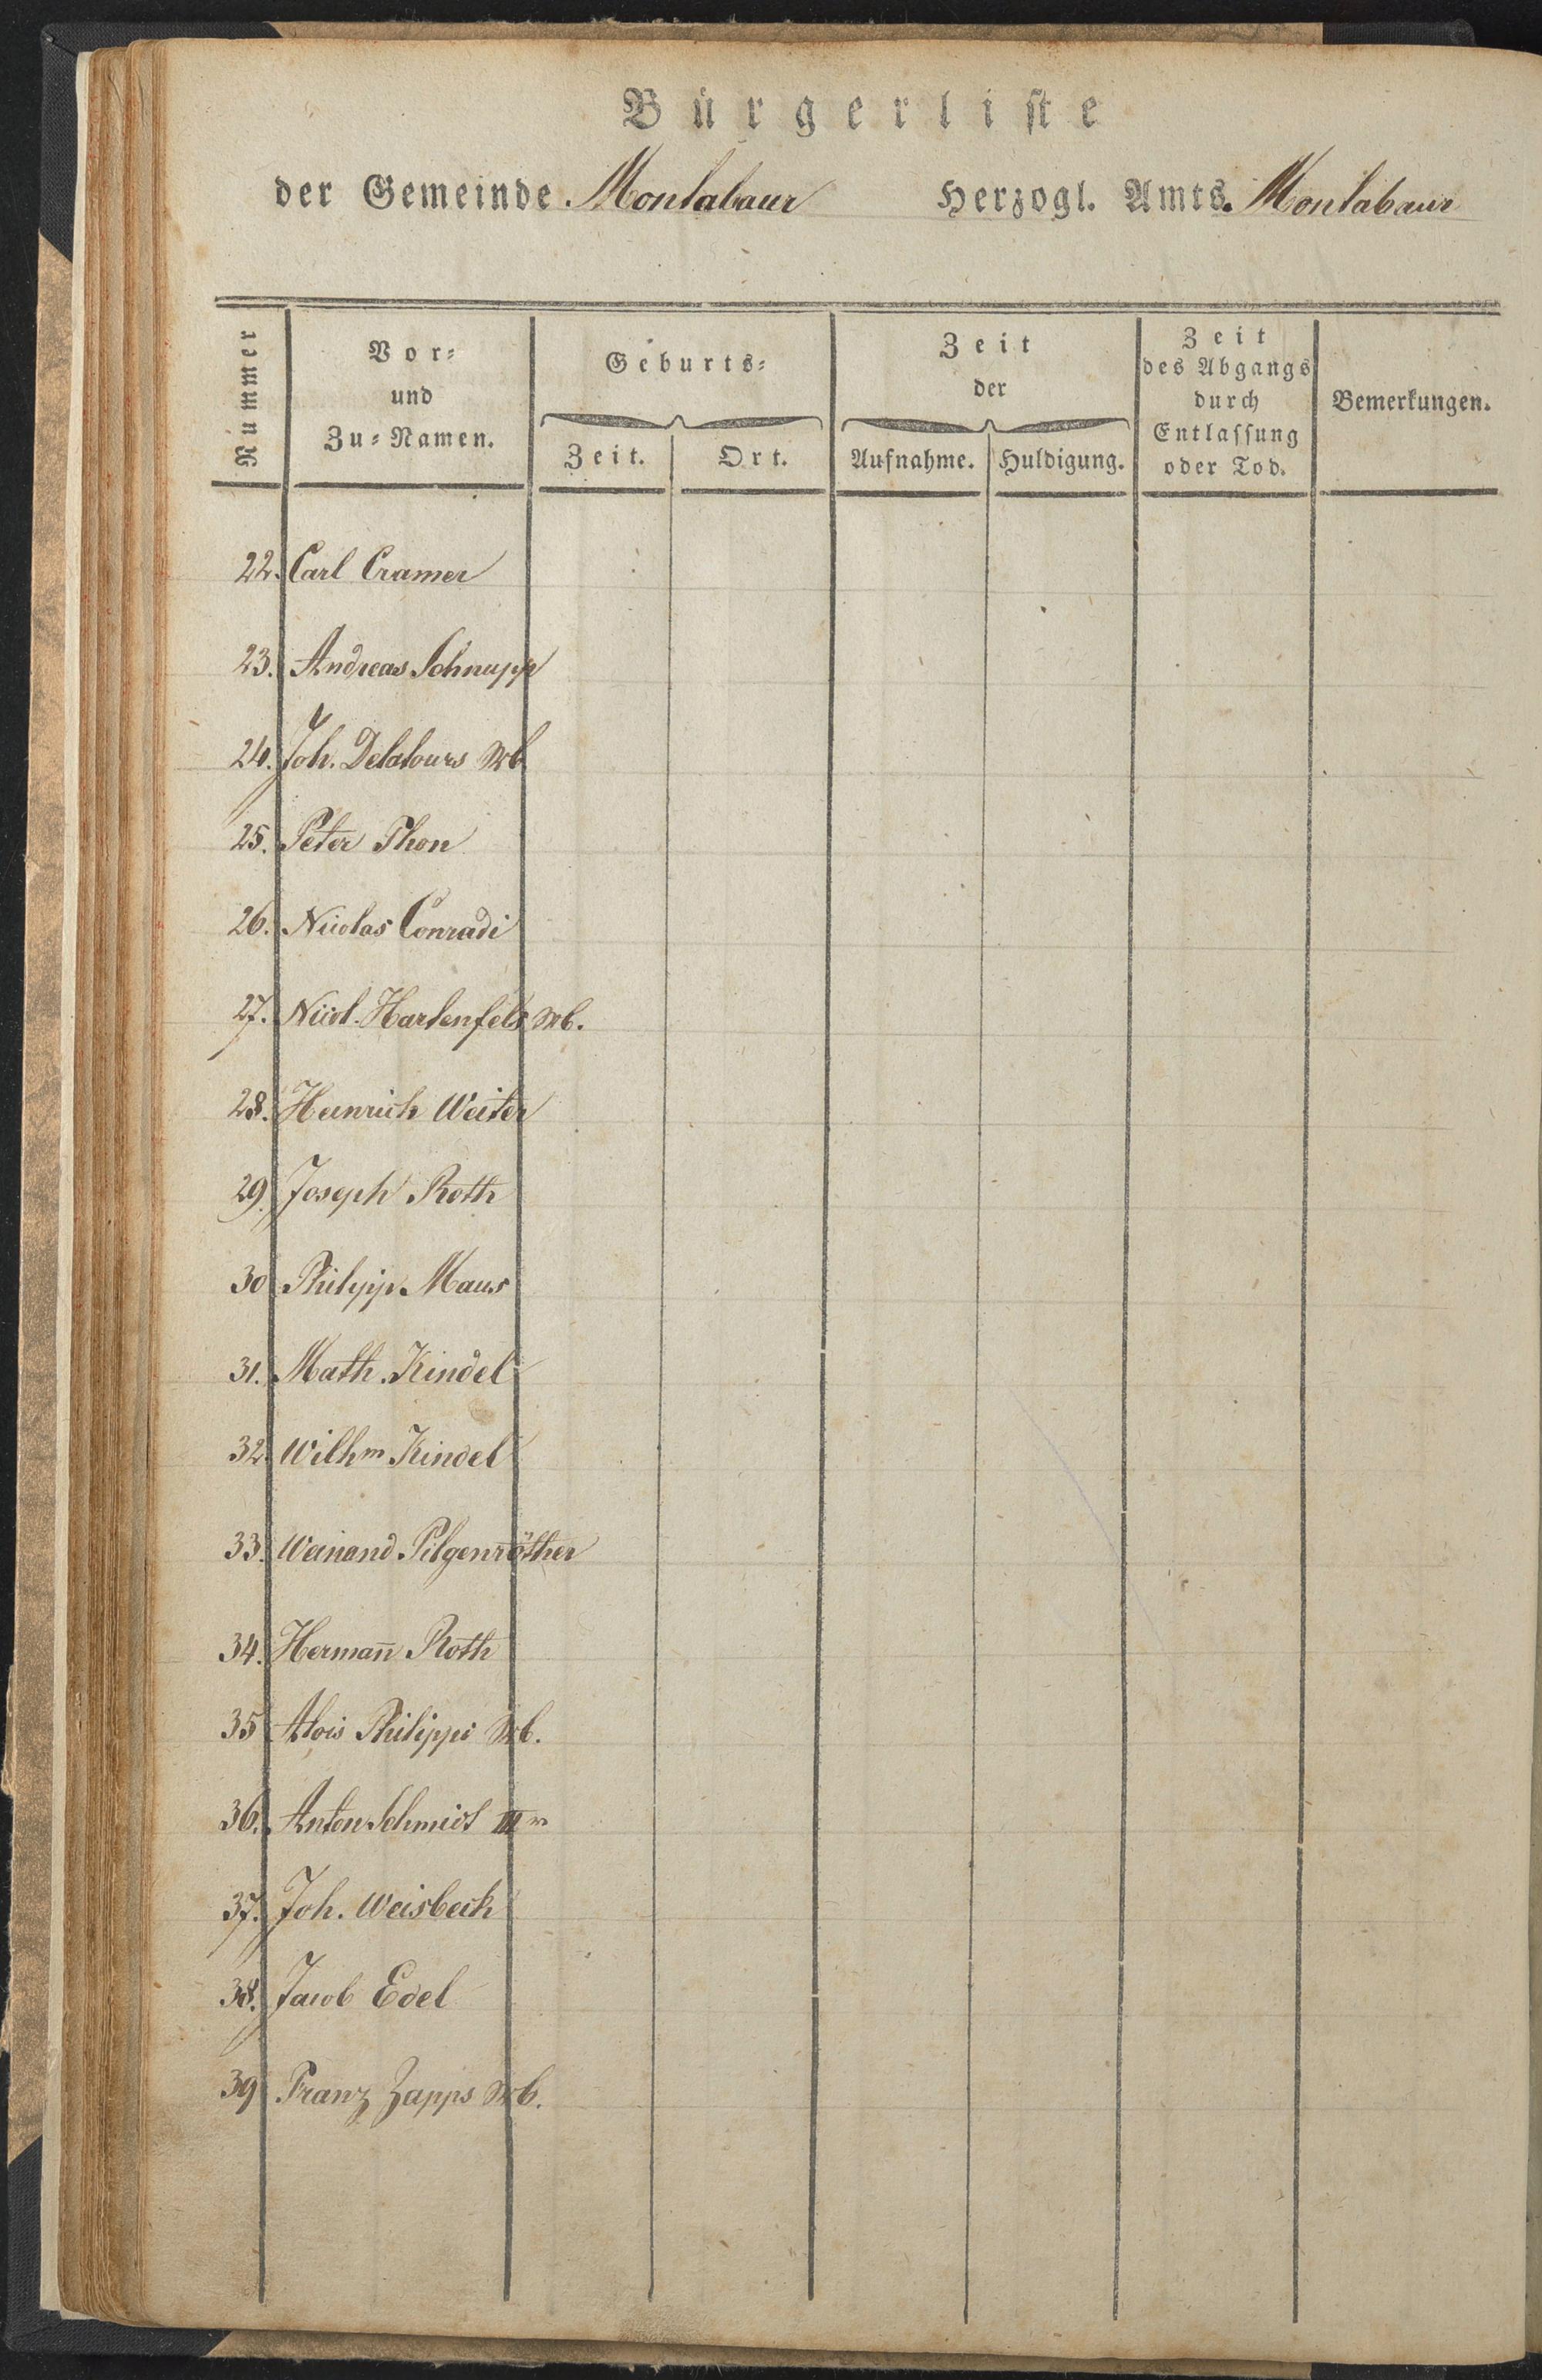 Bürgerliste
der Gemeinde Montabaur Herzogl. Amts Montabaur
Nummer
Vor-
und
Zu-Namen.
Geburts-
Zeit. Ort.
Zeit
der
Aufnahme. Huldigung.
Zeit
des Abgangs
durch
Entlassung
oder Tod.
Bemerkungen.
22. Carl Cramer
23. Andreas Schnupp
24. Joh. Delatours Wb.
25. Peter Thon
26. Nicolas Conradi
27. Nicol. Hartenfels Wb.
28. Heinrich Weiter
29. Joseph Roth
30 Philipp Maus
31. Math. Kindel
32. Wilhm Kindel
33. Weinand Pilgenröther
34. Hermañ Roth
35 Alois Philippi Wb.
36. Anton Schmidt III r
37. Joh. Weisbeck
38. Jacob Edel
39 Franz Zapps Wb.